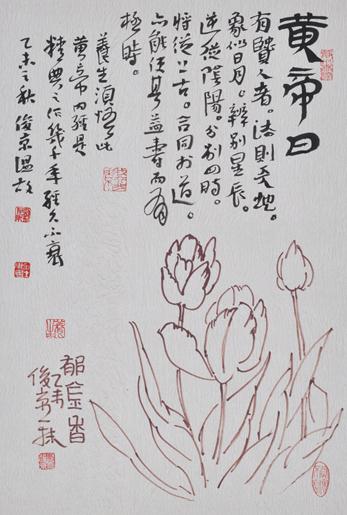 黄帝曰
有賢人者。法則天地。
象似日月。辨別星辰。
逆從陰陽。分別四時。
將從上古。合同於道。
亦能使其益壽而有
極時。
養生須悟此
黄帝内經是
精典之作幾千年經久不衰
乙未之秋 俊京温故
郁金香
乙未
俊京一抹